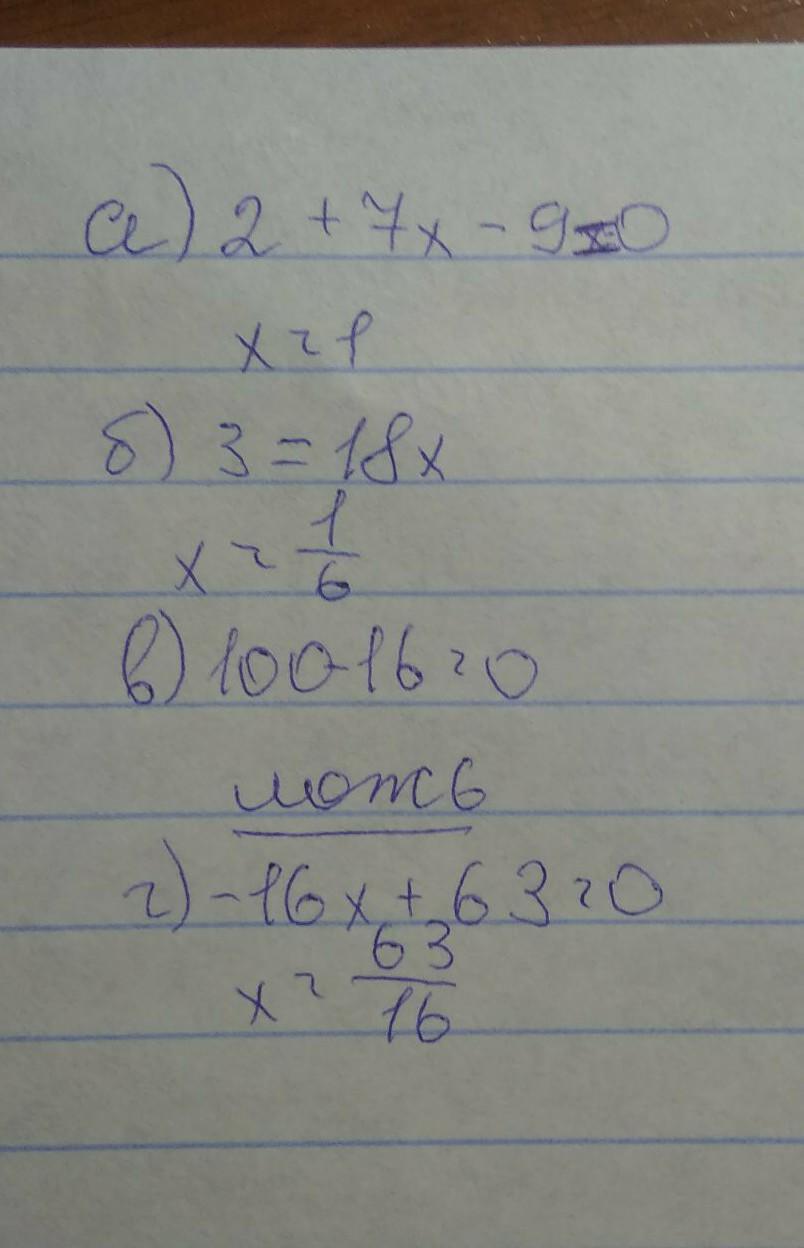 а) 2 + 7x - 9 = 0
x = 1
б) 3 = 18x
x = 1/6
в) 100-16 = 0
ложь
г) -16x + 63 = 0
x = 63/16